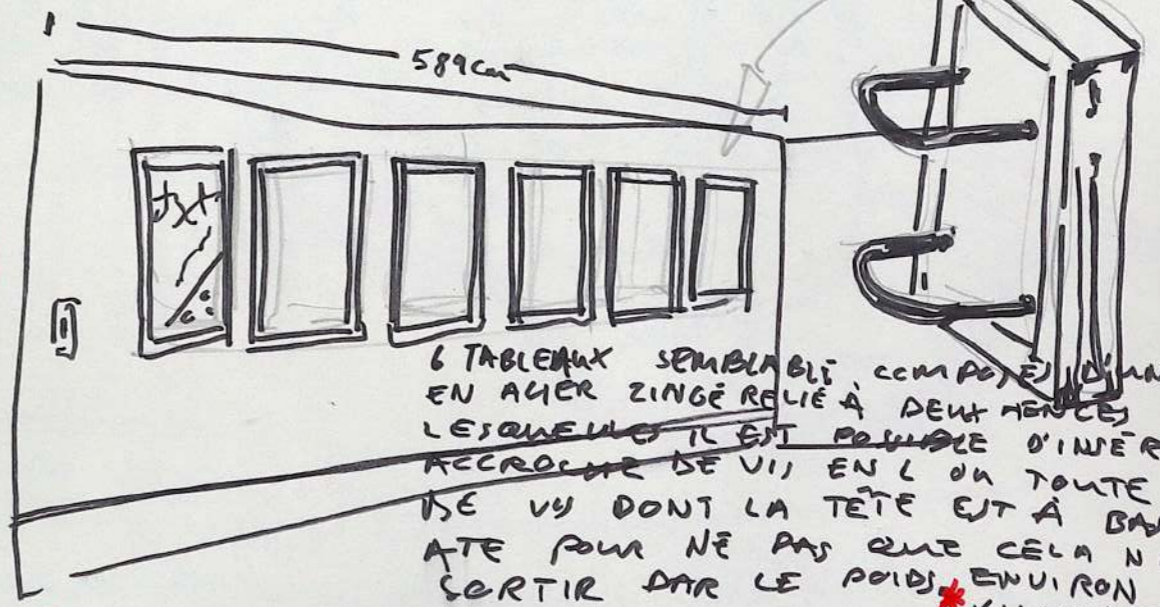 589cm
txt
6 TABLEAUX SEMBLABLE COMPOSÉS D'UN
EN ACIER ZINGÉ RELIÉ À DEUX
LESQUELLES IL EST POSSIBLE D'INSÉR
DE VIS EN L OU TOUTE
DE VIS DONT LA TÊTE EST À BA
ATE POUR NE PAS QUE CELA N
SORTIR PAR LE POIDS. ENVIRON